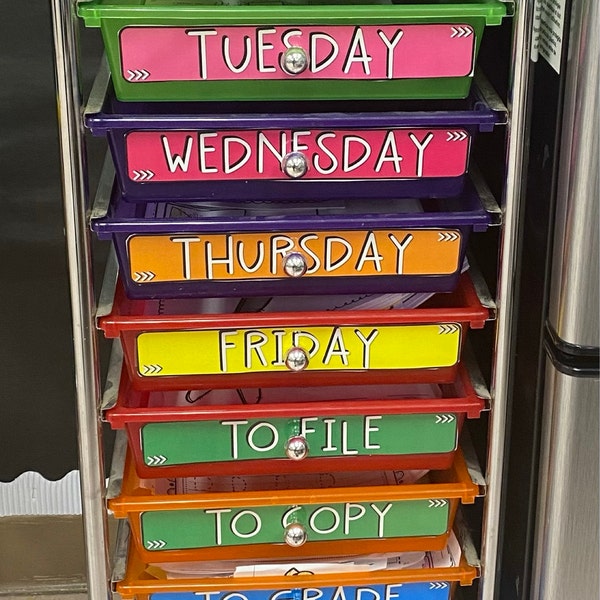 TUESDAY
WEDNESDAY
THURSDAY
FRIDAY
TO FILE
TO COPY
TO GRADE